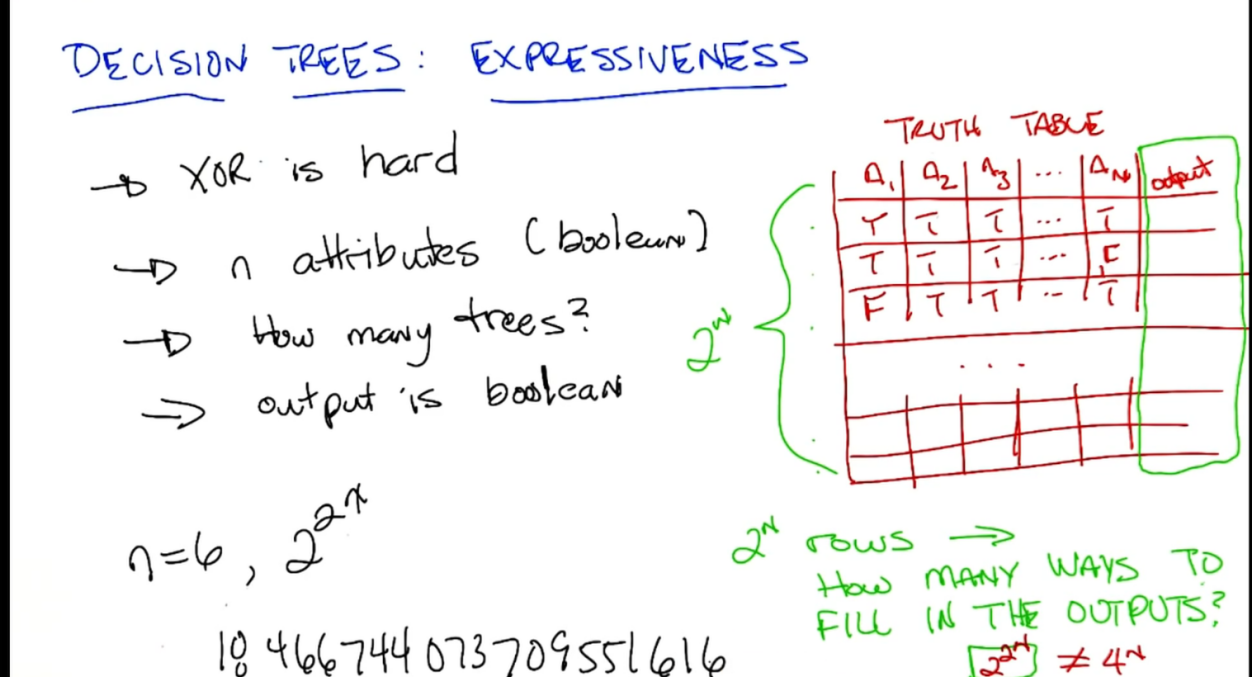 DECISION TREES: EXPRESSIVENESS
→ XOR is hard
→ n attributes (boolean)
→ How many trees?
→ output is boolean
n=6, 2^2^n
18 446744073709551616
TRUTH TABLE
A₁ A₂ A₃ ... A_N output
T T T ... T
T T T ... F
F T T ... T
...
2^N
2^N rows →
How MANY WAYS TO
FILL IN THE OUTPUTS?
2^2^N ≠ 4^N